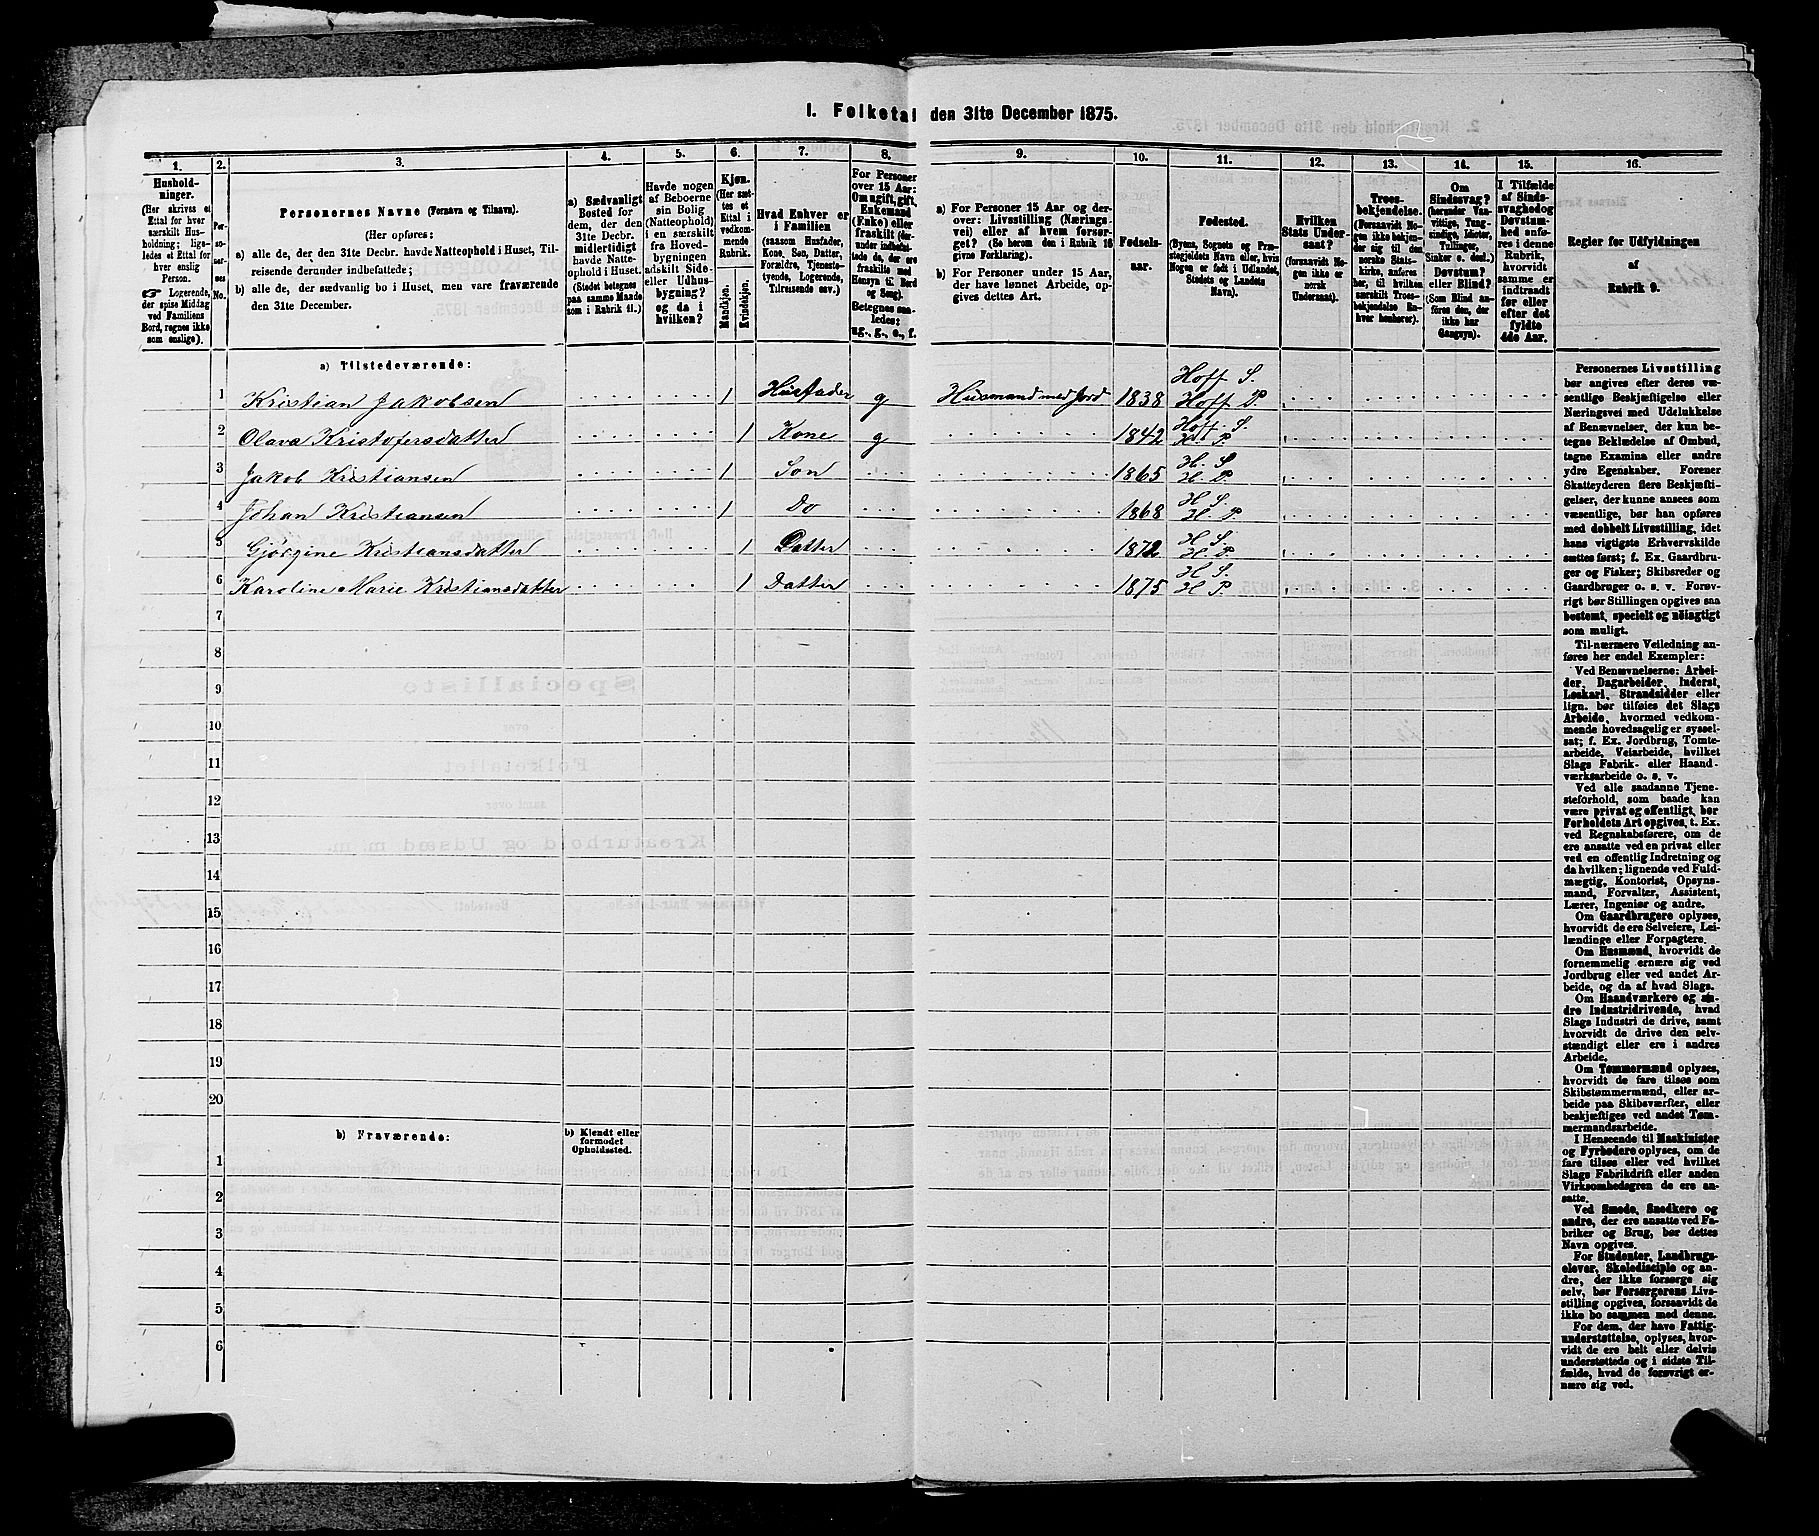 I. Folketal den 31te December 1875.
1. 2. 3. 4. 5. 6. 7. 8. 9. 10. 11. 12. 13. 14. 15. 16.
Hushold-
ninger.
(Her skrives et
Ettal for hver
særskilt Hus-
holdning; lige-
ledes et Ettal for
hver enslig
Person.
☞ Logerende,
der spise Middag
ved Familiens
Bord, regnes ikke
som enslige).
Per-
so-
ner-
nes
No.
Personernes Navne (Fornavn og Tilnavn).
(Her opføres:
a) alle de, der den 31te Decbr. havde Natteophold i Huset, Til-
reisende derunder indbefattede;
b) alle de, der sædvanlig bo i Huset, men vare fraværende
den 31te December.
a) Sædvanligt
Bosted for
dem, der den
31te Decbr.
midlertidigt
havde Natte-
ophold i Huset.
(Stedet betegnes
paa samme Maade
som i Rubrik 11.)
Havde nogen
af Beboerne
sin Bolig
(Natteophold)
i en særskilt
fra Hoved-
bygningen
adskilt Side-
eller Udhus-
bygning?
og da i
hvilken?
Kjøn.
(Her sæt-
tes et
Ettal i
vedkom-
mende
Rubrik.
Mandkjøn.
Kvindekjøn.
Hvad Enhver er
i Familien
(saasom Husfader,
Kone, Søn, Datter,
Forældre, Tjeneste-
tyende, Logerende,
Tilreisende osv.)
For Personer
over 15 Aar:
Om ugift, gift,
Enkemand
(Enke) eller
fraskilt (der-
under indbefat-
tede de, der ere
fraskilte med
Hensyn til Bord
og Seng).
Betegnes saa-
ledes:
ug., g., e., f.
a) For Personer 15 Aar og der-
over: Livsstilling (Nærings-
vei) eller af hvem forsør-
get? (Se herom den i Rubrik 16
givne Forklaring).
b) For Personer under 15 Aar,
der have lønnet Arbeide, op-
gives dettes Art.
Fødsels-
aar.
Fødested.
(Byens, Sognets og Præ-
stegjeldets Navn eller, hvis
Nogen er født i Udlandet,
Stedets og Landets
Navn).
Hvilken
Stats Under-
saat?
(forsaavidt No-
gen ikke er
norsk
Undersaat).
Troes-
bekjendelse.
(Forsaavidt No-
gen ikke bekjen-
der sig til den
norske Stats-
kirke, anføres
her, til hvilken
særskilt Troes-
bekjendelse Ra-
hver henhører).
Om
Sindssvag?
(herunder Van-
vittige, Tung-
sindige, Idioter,
Tullinger,
Sinker o. desl.)
Døvstum?
eller Blind?
(Som Blind an-
føres den, der
ikke har
Gangsyn).
I Tilfælde
af Sinds-
svaghedog
Døvstum-
hed anfø-
res i denne
Rubrik,
hvorvidt
samme er
indtraadt
før eller
efter det
fyldte
4de Aar.
Regler for Udfyldningen
af
Rubrik 9.
a) Tilstedeværende:
1 Kristian Jakobsen 1 Husfader g Husmand med Jord 1838 Hoff S. Hoff P.
2 Olava Kristofersdatter 1 Kone g 1842 Hoff S. H. P.
3 Jakob Kristiansen 1 Søn 1865 H. S. H. P.
4 Johan Kristiansen 1 Do 1868 H S. H P.
5 Gjorgine Kristiansdatter 1 Datter 1872 H S. H P.
6 Karoline Marie Kristiansdatter 1 Datter 1875 H S. H P.
7
8
9
10
11
12
13
14
15
16
17
18
19
20
b) Fraværende:
b) Kjendt eller
formodet
Opholdssted.
1
2
3
4
5
6
Personernes Livsstilling
bør angives efter deres væ-
sentlige Beskjæftigelse eller
Næringsvei med Udelukkelse
af Benævnelser, der kun be-
tegne Beklædelse af Ombud,
tagne Examina eller andre
ydre Egenskaber. Forener
Skatteyderen flere Beskjæfti-
gelser, der kunne ansees som
væsentlige, bør han opføres
med dobbelt Livsstilling, idet
hans vigtigste Erhvervskilde
sættes først; f. Ex. Gaardbru-
ger og Fisker; Skibsreder og
Gaardbruger o. s. v. Forøv-
rigt bør Stillingen opgives saa
bestemt, specielt og nøiagtigt
som muligt.
Til nærmere Veiledning an-
føres her endel Exempler:
Ved Benævnelserne: Arbei-
der, Dagarbeider, Inderst,
Løskarl, Strandsidder eller
lign. bør tilføies det Slags
Arbeide, hvormed vedkom-
mende hovedsagelig er syssel-
sat; f. Ex. Jordbrug, Tomte-
arbeide, Veiarbeide, hvilket
Slags Fabrik- eller Haand-
værksarbeide o. s. v.
Ved alle saadanne Tjene-
steforhold, som baade kan
være privat og offentligt, bør
Forholdets Art opgives, t. Ex.
ved Regnskabsførere, om de
ere ansatte ved en privat eller
ved en offentlig Indretning og
da hvilken; lignende ved Fuld-
mægtig, Kontorist, Opsyns-
mand, Forvalter, Assistent,
Lærer, Ingeniør og andre.
Om Gaardbrugere oplyses,
hvorvidt de ere Selveiere, Lei-
lændinge eller Forpagtere.
Om Husmænd, hvorvidt de
fornemmelig ernære sig ved
Jordbrug eller ved andet Ar-
beide, og da af hvad Slags.
Om Haandværkere og an-
dre Industridrivende, hvad
Slags Industri de drive, samt
hvorvidt de drive den selv-
stændigt eller ere i andres
Arbeide.
Om Tømmermænd oplyses,
hvorvidt de fare tilsøs som
Skibstømmermænd, eller ar-
beide paa Skibsværfter, eller
beskjæftiges ved andet Tøm-
mermandsarbeide.
I Henseende til Maskinister
og Fyrbødere oplyses, om de
fare tilsøs eller ved hvilket
Slags Fabrikdrift eller anden
Virksomhedsgren de ere an-
satte.
Ved Smede, Snedkere og
andre, der ere ansatte ved Fa-
briker og Brug, bør dettes
Navn opgives.
For Studenter, Landbrugs-
elever, Skoledisciple og an-
dre, der ikke forsørge sig
selv, bør Forsørgerens Livs-
stilling opgives, forsaavidt de
ikke bo sammen med denne.
For dem, der have Fattig-
understøttelse, oplyses, hvor-
vidt de ere helt eller delvis
understøttede og i sidste Til-
fælde, hvad de forøvrigt er-
nære sig ved.